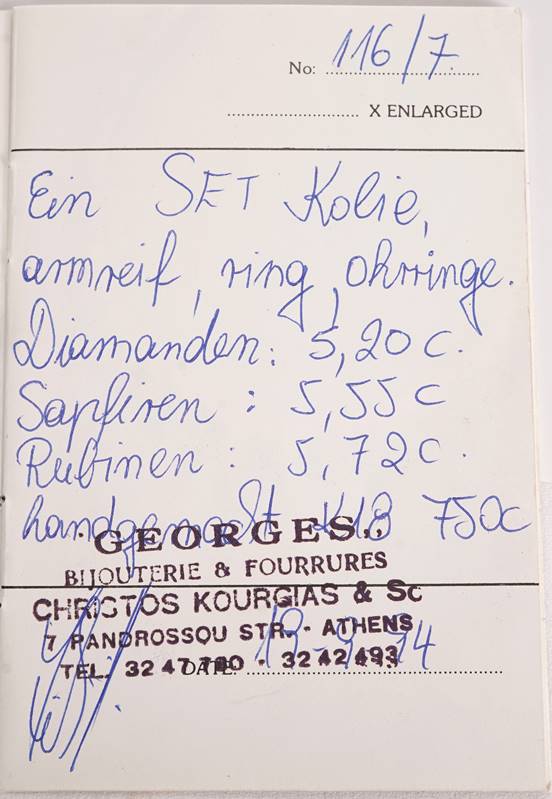 No: 116/7
X ENLARGED
Ein SET Kolie,
armreif, ring, ohrringe.
Diamanden: 5,20 c.
Sapfiren: 5,55 c
Rubinen: 5,72 c.
handgemaht K18 750c
"GEORGES"
BIJOUTERIE & FOURRURES
CHRISTOS KOURGIAS & Sc
7 PANDROSSOU STR. - ATHENS
TEL. 32 47 790 - 32 42 493
DATE: